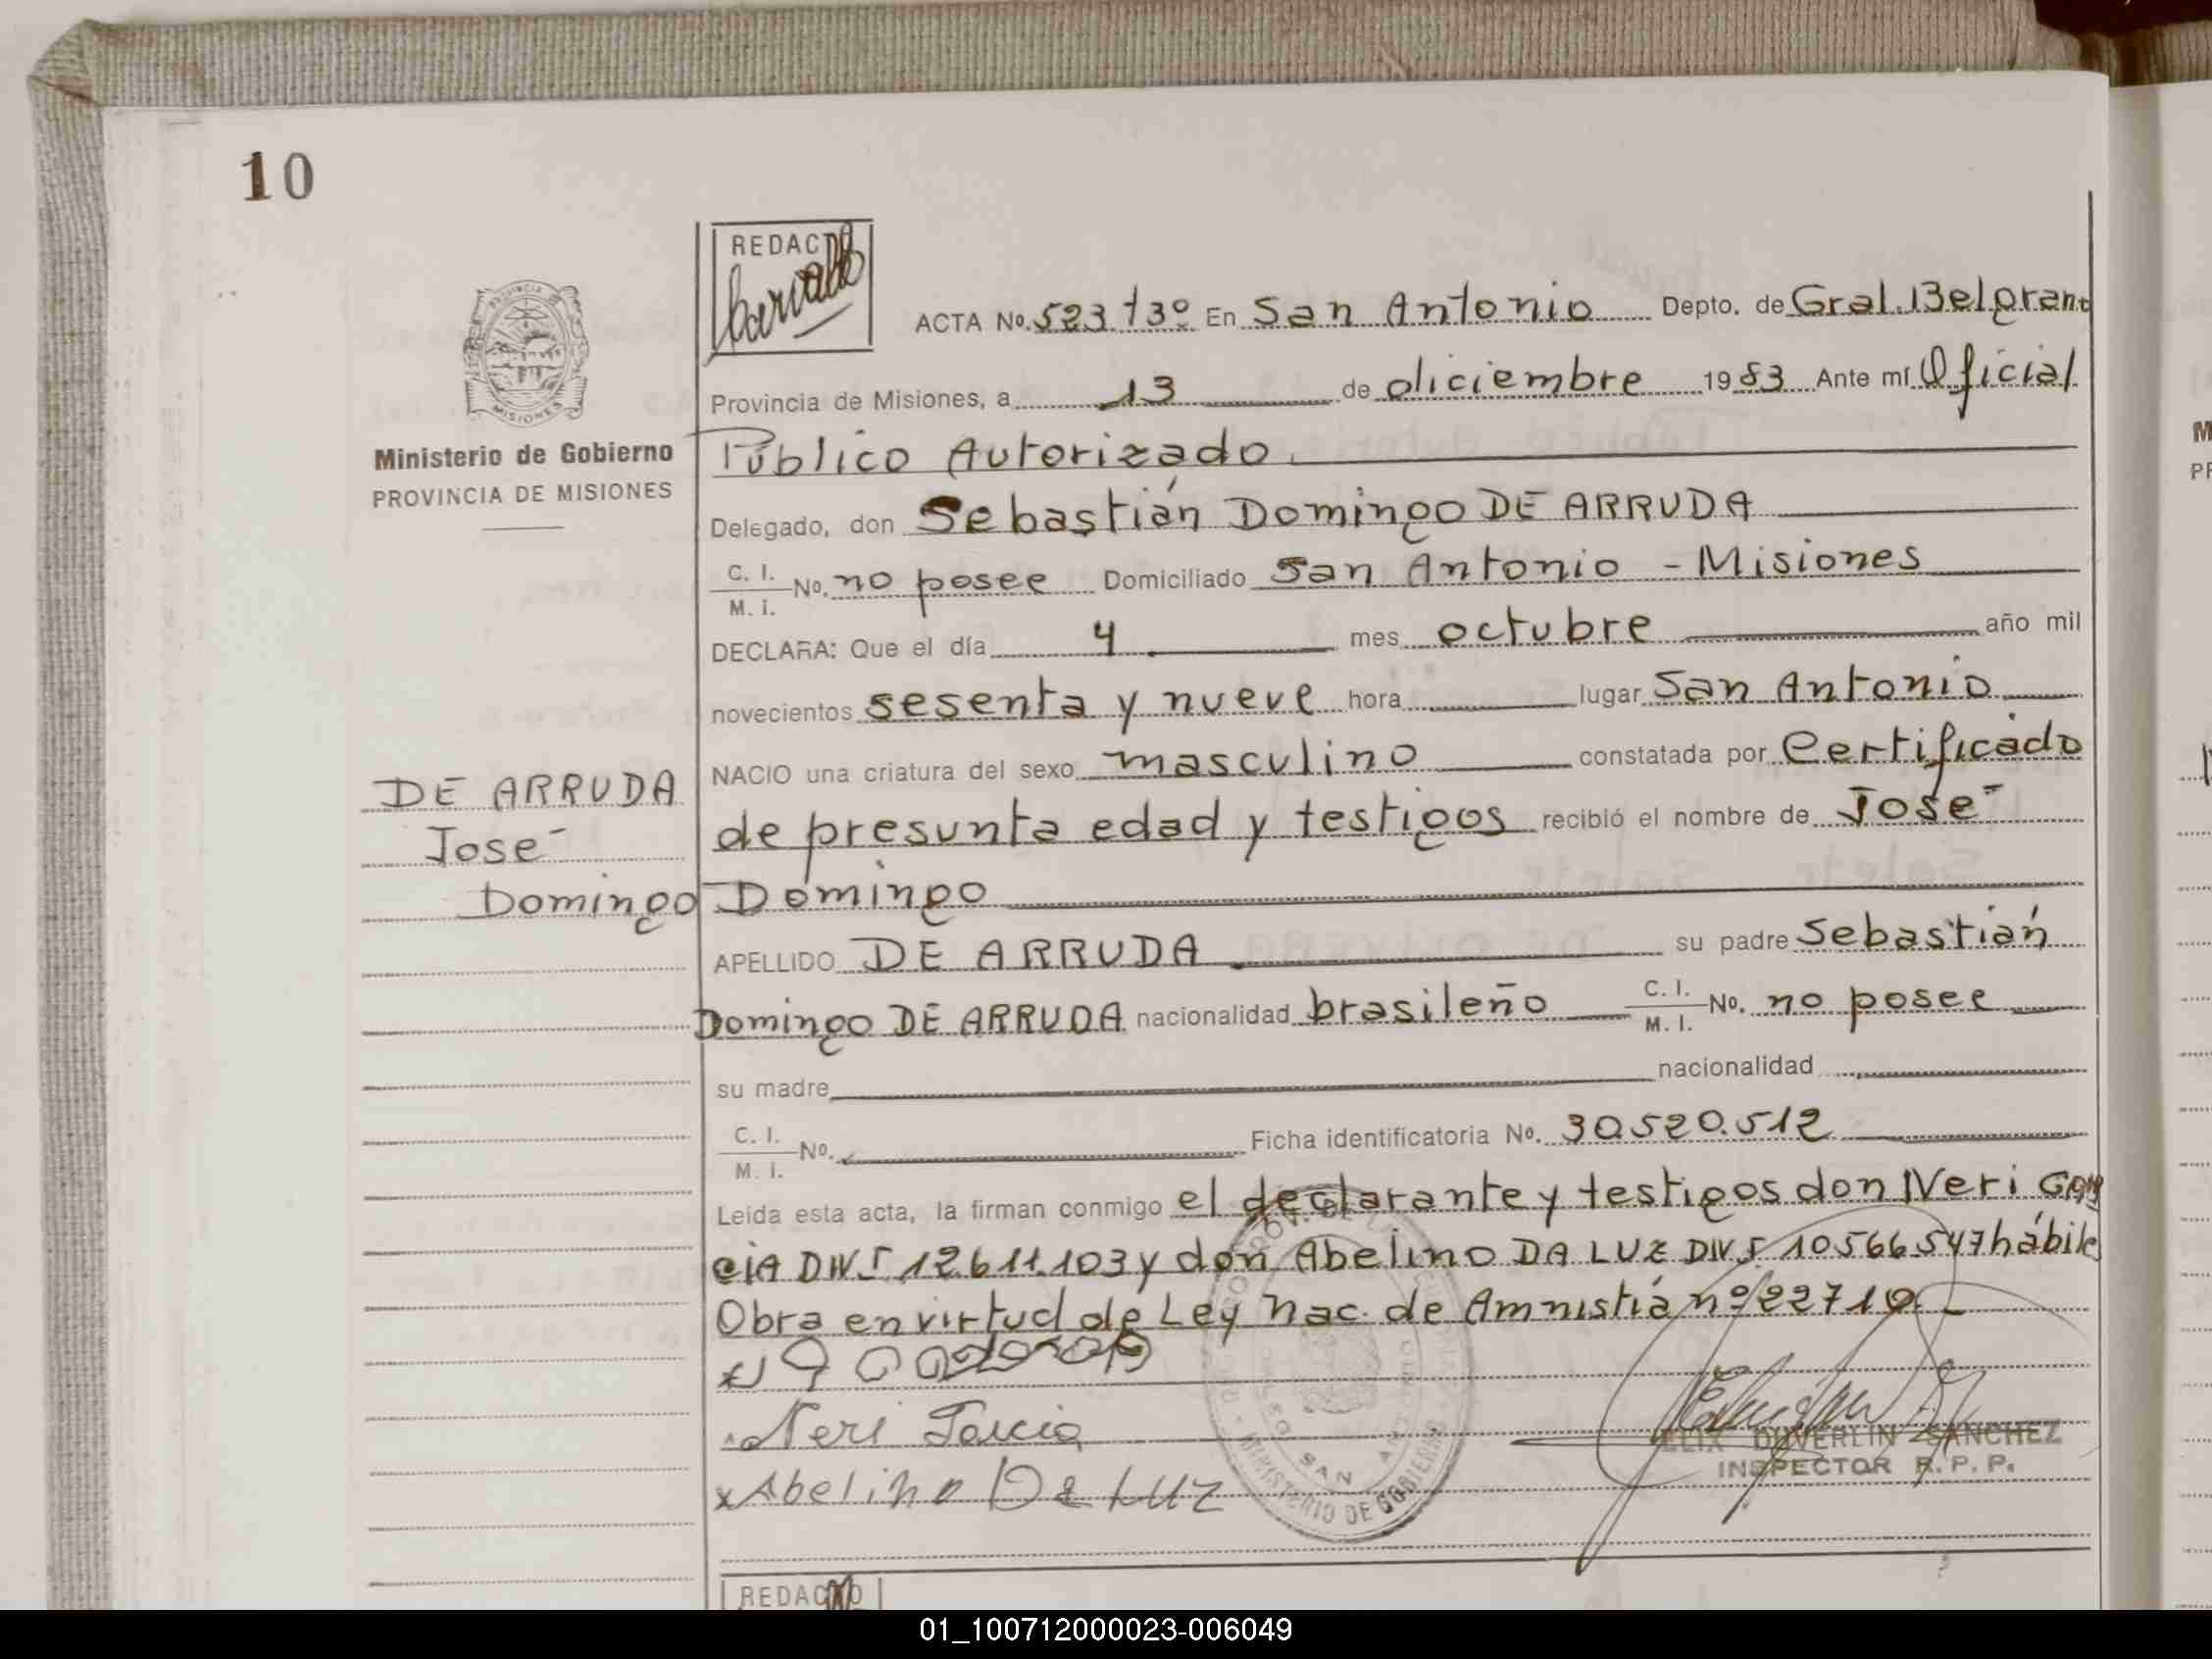 10
REDACTO
ACTA No. 523 T3º En San Antonio Depto. de Gral. Belgrano
Provincia de Misiones, a 13 de diciembre 1983 Ante mí Oficial
Público Autorizado.
Ministerio de Gobierno
PROVINCIA DE MISIONES
Delegado, don Sebastián Domingo DE ARRUDA
C. I.
M. I. No. no posee Domiciliado San Antonio - Misiones
DECLARA: Que el día 4 mes octubre año mil
novecientos sesenta y nueve hora lugar San Antonio
NACIO una criatura del sexo masculino constatada por Certificado
de presunta edad y testigos recibió el nombre de José
Domingo
DE ARRUDA
José
Domingo
APELLIDO DE ARRUDA su padre Sebastián
Domingo DE ARRUDA nacionalidad brasileño C. I. M. I. No. no posee
su madre nacionalidad
C. I.
M. I. No. Ficha identificatoria No. 30.520.512
Leida esta acta, la firman conmigo el declarante y testigos don Neri GAR
CIA DNI 12.611.103 y don Abelino DA LUZ DNI 10566547 hábiles
Obra en virtud de Ley Nac. de Amnistiá nº 22710.-
Neri Garcia
x Abelino Da Luz
MINISTERIO DE GOBIERNO
SAN
DUVERLIN SANCHEZ
INSPECTOR R. P. P.
REDACTO
01_100712000023-006049